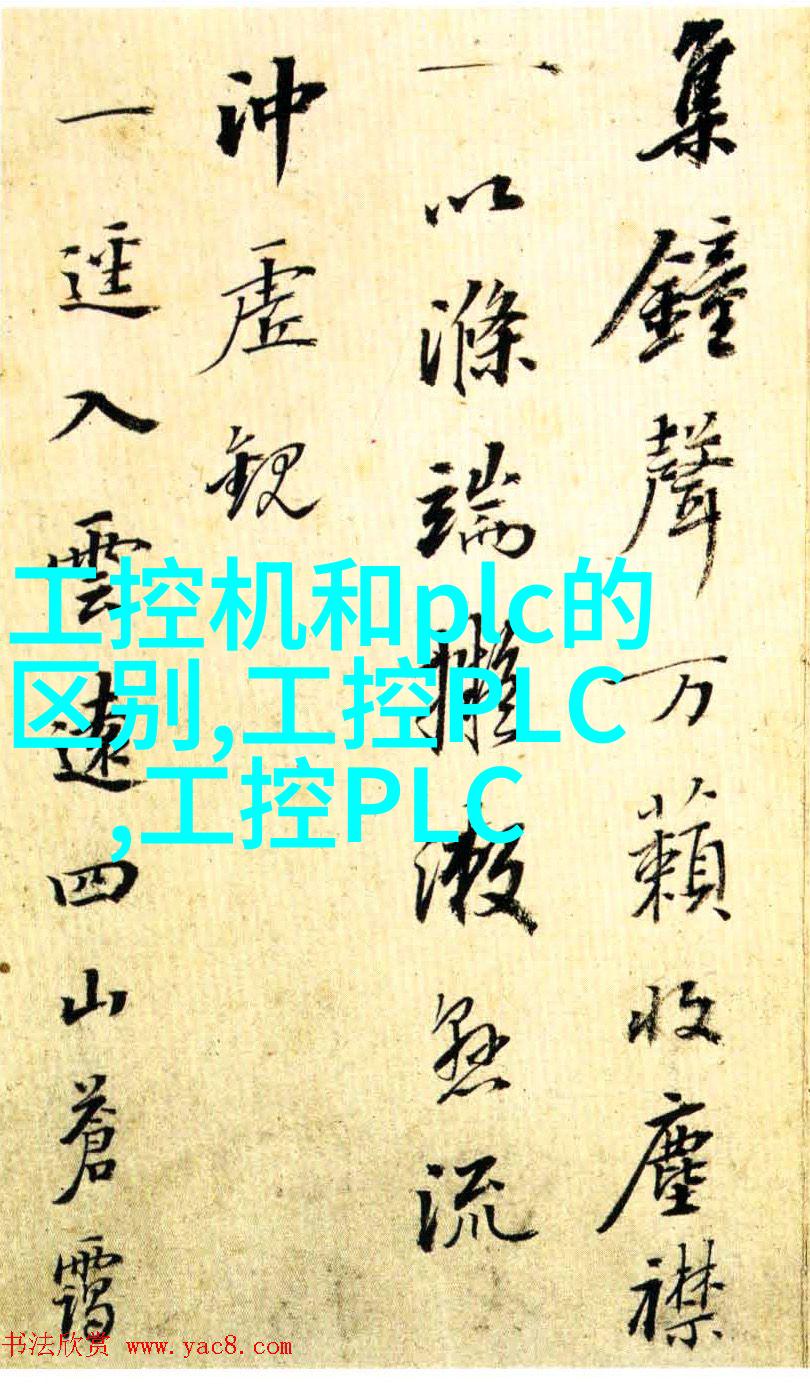 集鐘聲万藾收塵襟
一以滌端擬漱懸流
沖虛觀
一逕入雲遠四山蒼靄
工控机和plc的
区别,工控PLC
,工控PLC
书法欣赏 www.yac8.com